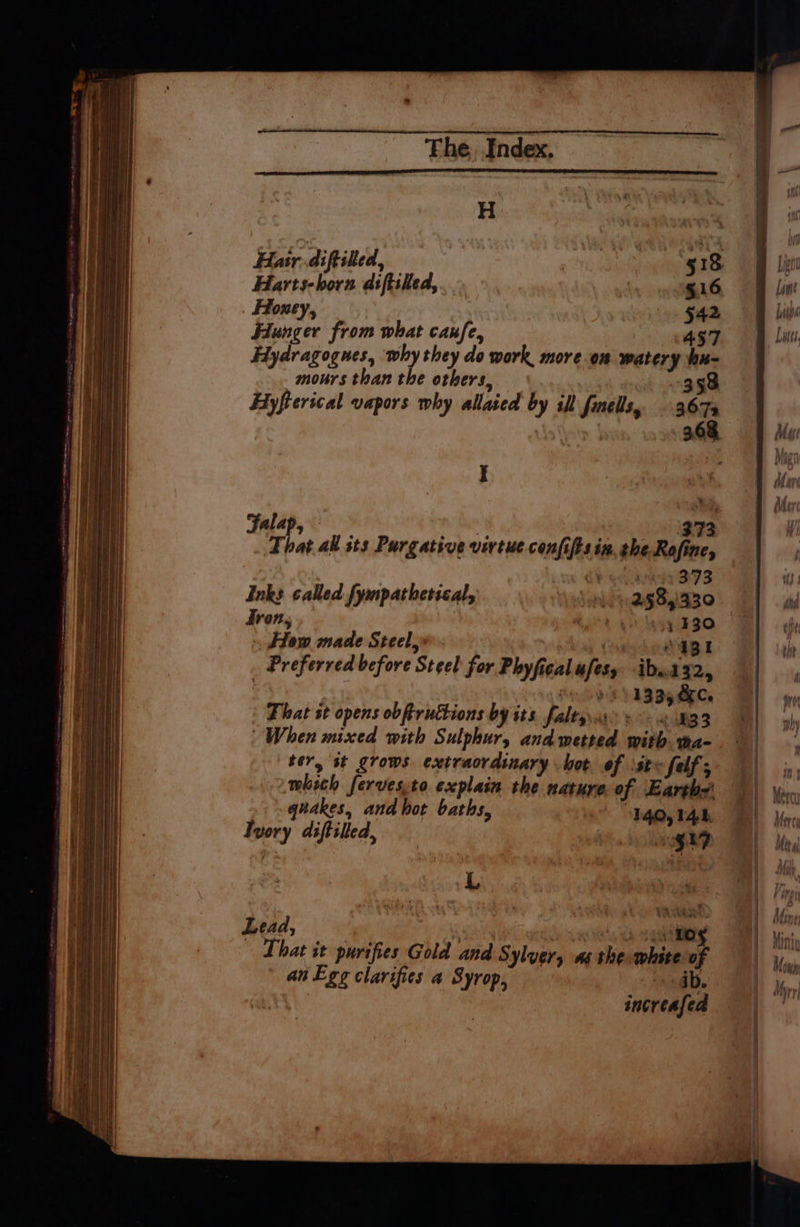 The Index.
H
Hair distilled, 518
Harts-horn distilled, 516
Honey, 542
Hunger from what cause, 457
Hydragogues, why they do work more on watery hu-
mours than the others, 358
Hysterical vapors why allaied by ill smells, 367,
368
I
Jalap, 373
That all its Purgative virtue consists in the Rosine,
373
Inks called sympathetical, 258, 330
Iron, 130
How made Steel, 131
Preferred before Steel for Physical uses, ib. 132,
133, &c.
That it opens obstructions by its salt, 133
When mixed with Sulphur, and wetted with wa-
ter, it grows extraordinary hot of it self;
which serves to explain the nature of Earth-
quakes, and hot baths, 140, 141.
Ivory distilled, 517
L
Lead, 105
That it purifies Gold and Sylver, as the white of
an Egg clarifies a Syrop, ib.
increased